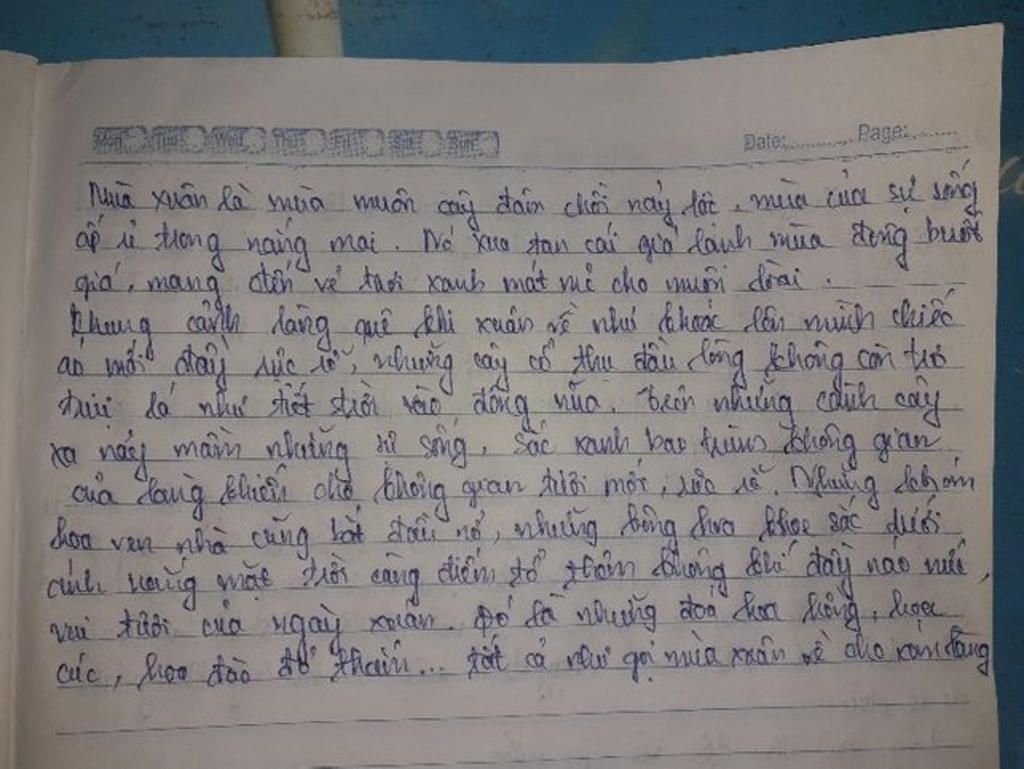 Mon Tue Wed Thu Fri Sat Sun
Date:............ Page:.........
Mùa xuân là mùa muôn cây đâm chồi nảy lộc, mùa của sự sống
ấp ủ trong nắng mai. Nó xua tan cái giá lạnh mùa đông buốt
giá, mang đến vẻ tươi xanh mát mẻ cho muôn loài.
Khung cảnh làng quê khi xuân về như khoác lên mình chiếc
áo mới đầy rực rỡ, những cây cổ thụ đầu làng không còn trơ
trụi lá như tiết trời vào đông nữa. Trên những cành cây
xa nảy mầm những sự sống, sắc xanh bao trùm không gian
của làng khiến cho không gian tươi mới, rực rỡ. Những khóm
hoa ven nhà cũng bắt đầu nở, những bông hoa khoe sắc dưới
ánh nắng mặt trời càng điểm tô thêm không khí đầy náo nức,
vui tươi của ngày xuân. Đó là những đoá hoa hồng, hoa
cúc, hoa đào đỏ thắm... tất cả như gọi mùa xuân về cho xóm làng